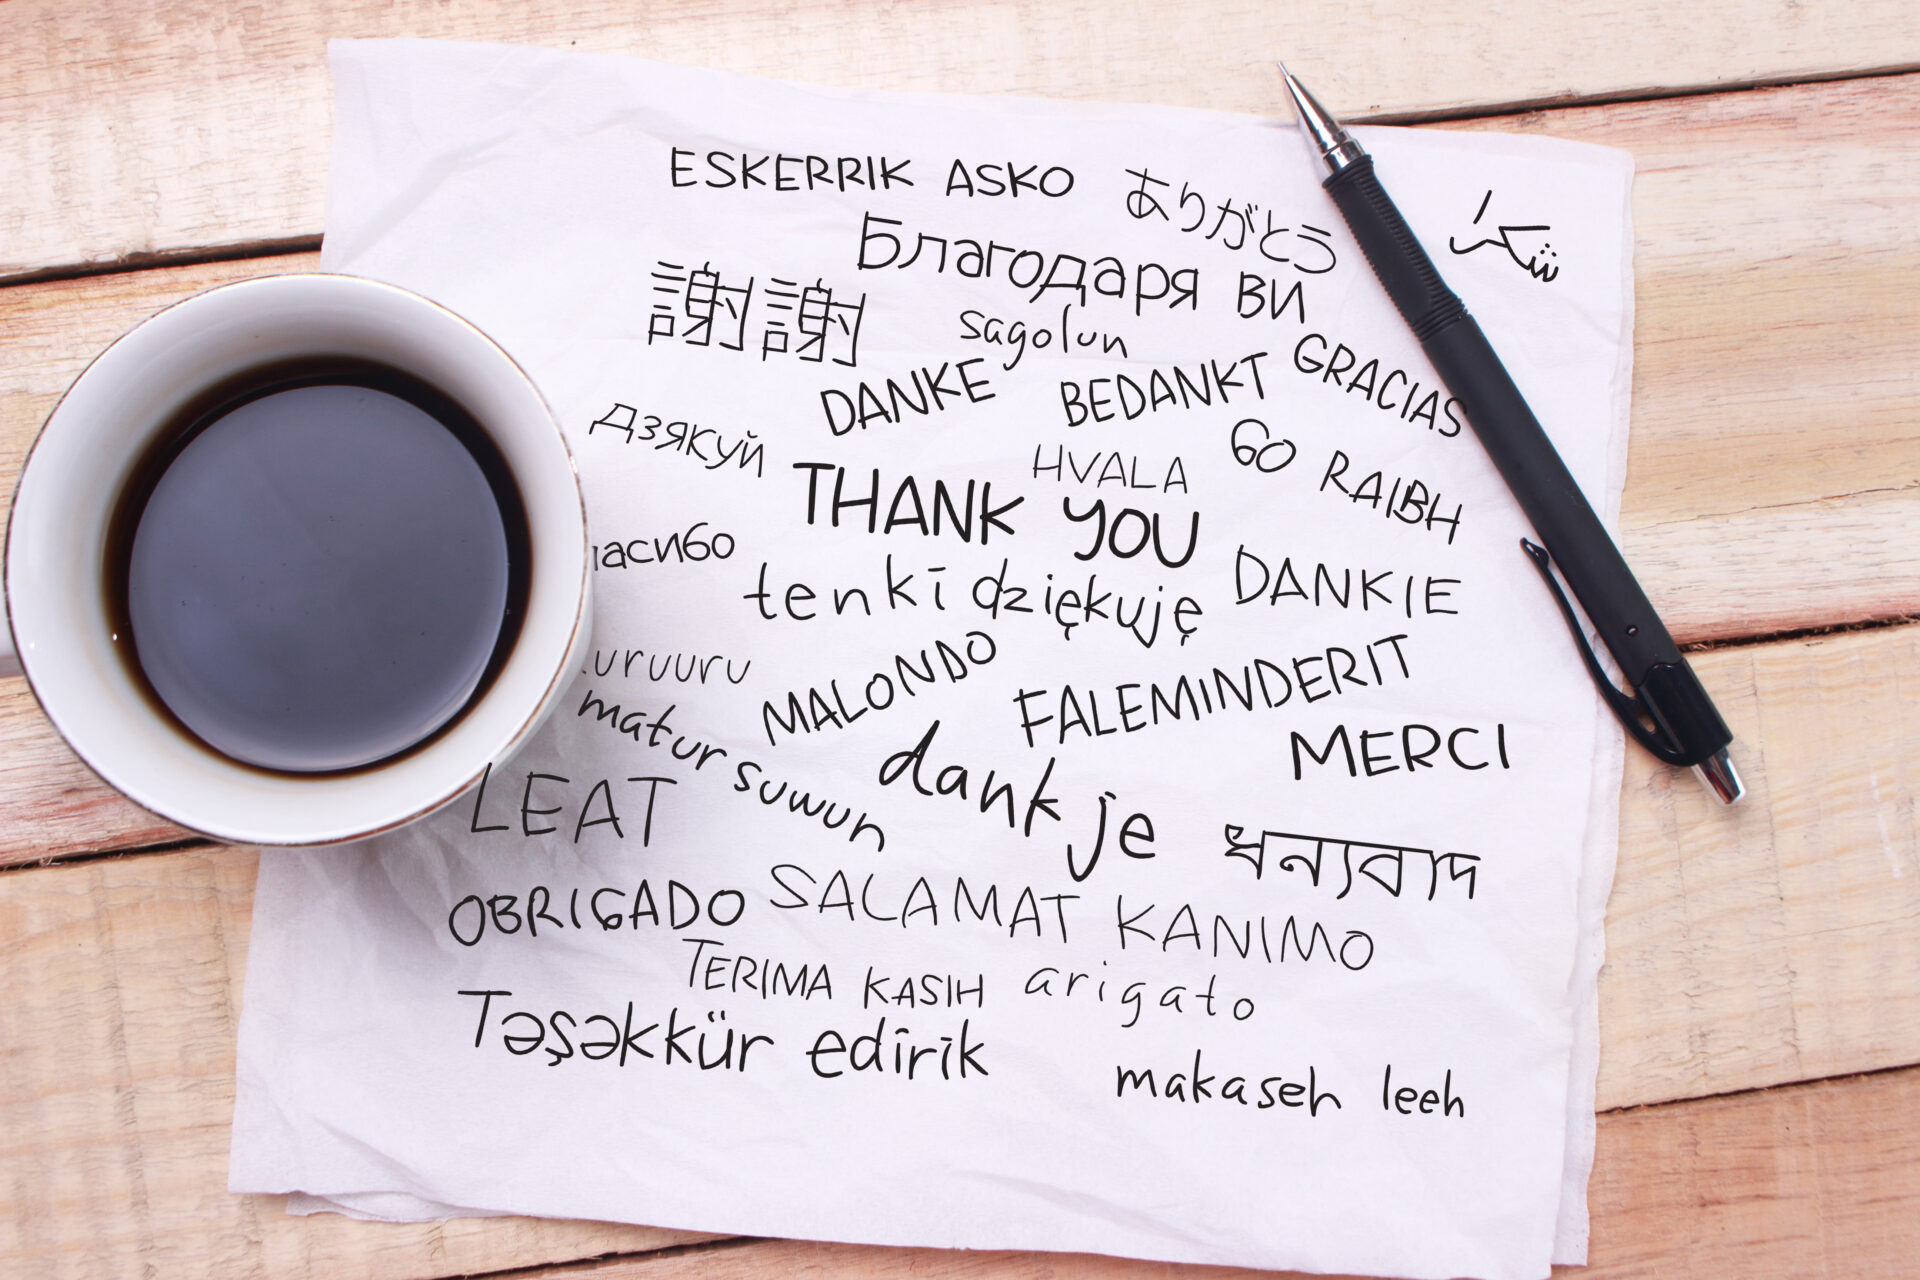 ESKERRIK ASKO
ありがとう
شكرا
Благодаря ви
謝謝
sagolun
GRACIAS
DANKE
BEDANKT
дзякуй
HVALA
GO RAIBH
THANK YOU
пасибо
tenkī
dziękuję
DANKIE
uruuru
MALONDO
FALEMINDERIT
matur suwun
MERCI
LEAT
dank je
ধন্যবাদ
OBRIGADO
SALAMAT
KANIMO
TERIMA KASIH
arigato
Təşəkkür edīrīk
makaseh leeh